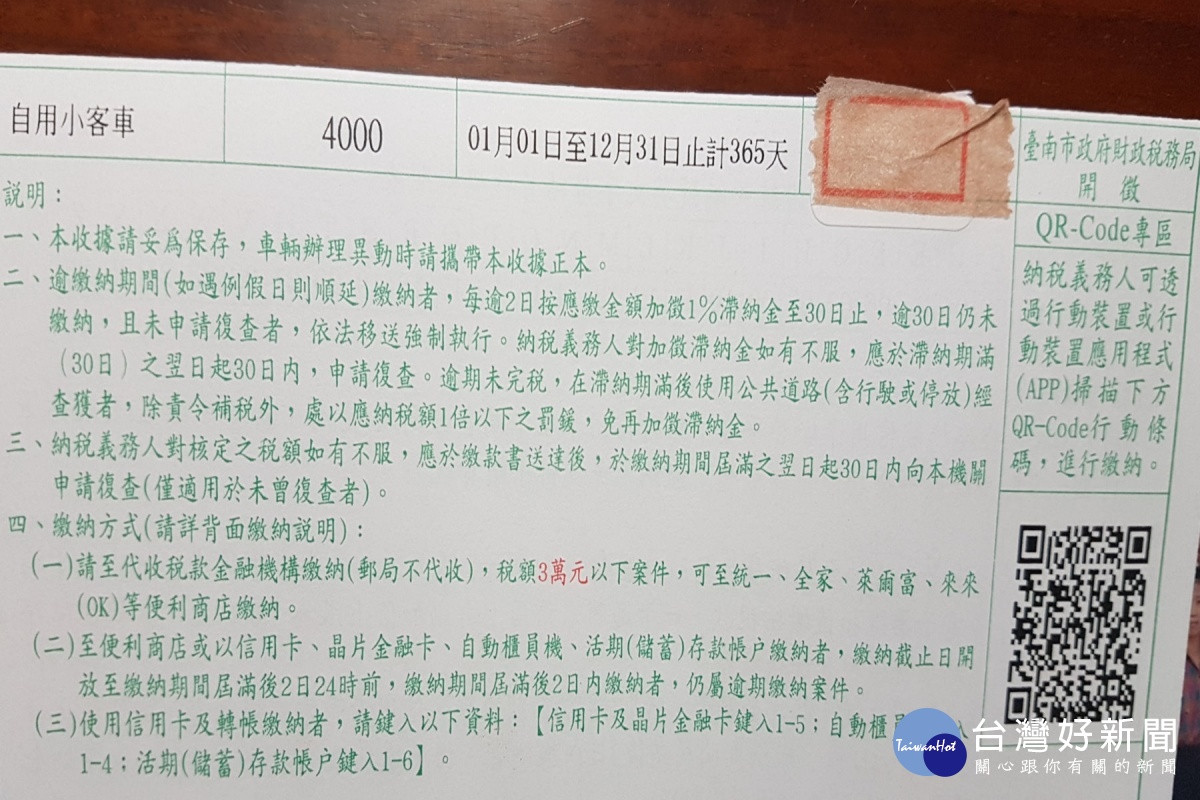 自用小客車
4000
01月01日至12月31日止計365天
臺南市政府財政稅務局
開 徵
說明：
一、本收據請妥為保存，車輛辦理異動時請攜帶本收據正本。
二、逾繳納期間(如遇例假日則順延)繳納者，每逾2日按應繳金額加徵1%滯納金至30日止，逾30日仍未
繳納，且未申請復查者，依法移送強制執行。納稅義務人對加徵滯納金如有不服，應於滯納期滿
(30日）之翌日起30日內，申請復查。逾期未完稅，在滯納期滿後使用公共道路(含行駛或停放)經
查獲者，除責令補稅外，處以應納稅額1倍以下之罰鍰，免再加徵滯納金。
三、納稅義務人對核定之稅額如有不服，應於繳款書送達後，於繳納期間屆滿之翌日起30日內向本機關
申請復查(僅適用於未曾復查者)。
四、繳納方式(請詳背面繳納說明)：
(一)請至代收稅款金融機構繳納(郵局不代收)，稅額3萬元以下案件，可至統一、全家、萊爾富、來來
(OK)等便利商店繳納。
(二)至便利商店或以信用卡、晶片金融卡、自動櫃員機、活期(儲蓄)存款帳戶繳納者，繳納截止日開
放至繳納期間屆滿後2日24時前，繳納期間屆滿後2日內繳納者，仍屬逾期繳納案件。
(三)使用信用卡及轉帳繳納者，請鍵入以下資料：【信用卡及晶片金融卡鍵入1-5；自動櫃員
1-4；活期(儲蓄)存款帳戶鍵入1-6】。
QR-Code專區
納稅義務人可透
過行動裝置或行
動裝置應用程式
(APP)掃描下方
QR-Code行動條
碼，進行繳納。
TaiwanHot
台灣好新聞
關心跟你有關的新聞